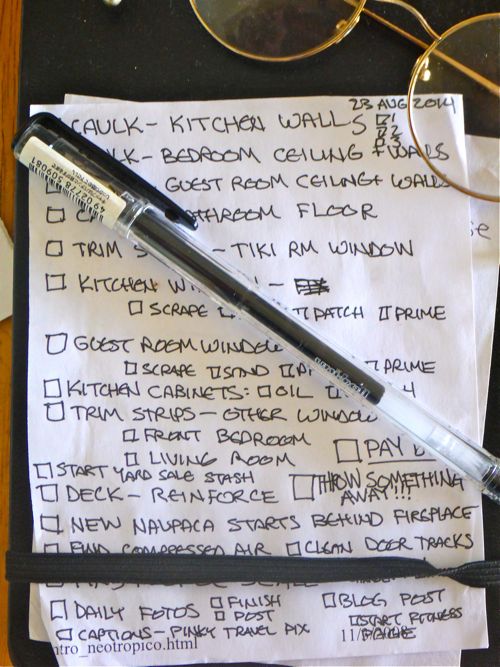 23 AUG 2014
CAULK - KITCHEN WALLS 1
2
3
BEDROOM CEILING + WALLS
GUEST ROOM CEILING + WALLS
FLOOR
TRIM - TIKI RM WINDOW
KITCHEN
SCRAPE PATCH PRIME
GUEST ROOM WINDOW
SCRAPE SAND PRIME
KITCHEN CABINETS: OIL
TRIM STRIPS - OTHER WINDOW
FRONT BEDROOM
LIVING ROOM PAY
START YARD SALE STASH
THROW SOMETHING AWAY!!!
DECK - REINFORCE
NEW NAUPACA STARTS BEHIND FIREPLACE
FIND COMPRESSED AIR CLEAN DOOR TRACKS
DAILY FOTOS FINISH BLOG POST
POST START FITNESS
CAPTIONS - PINKY TRAVEL PIX
ntro_neotropico.html 11/